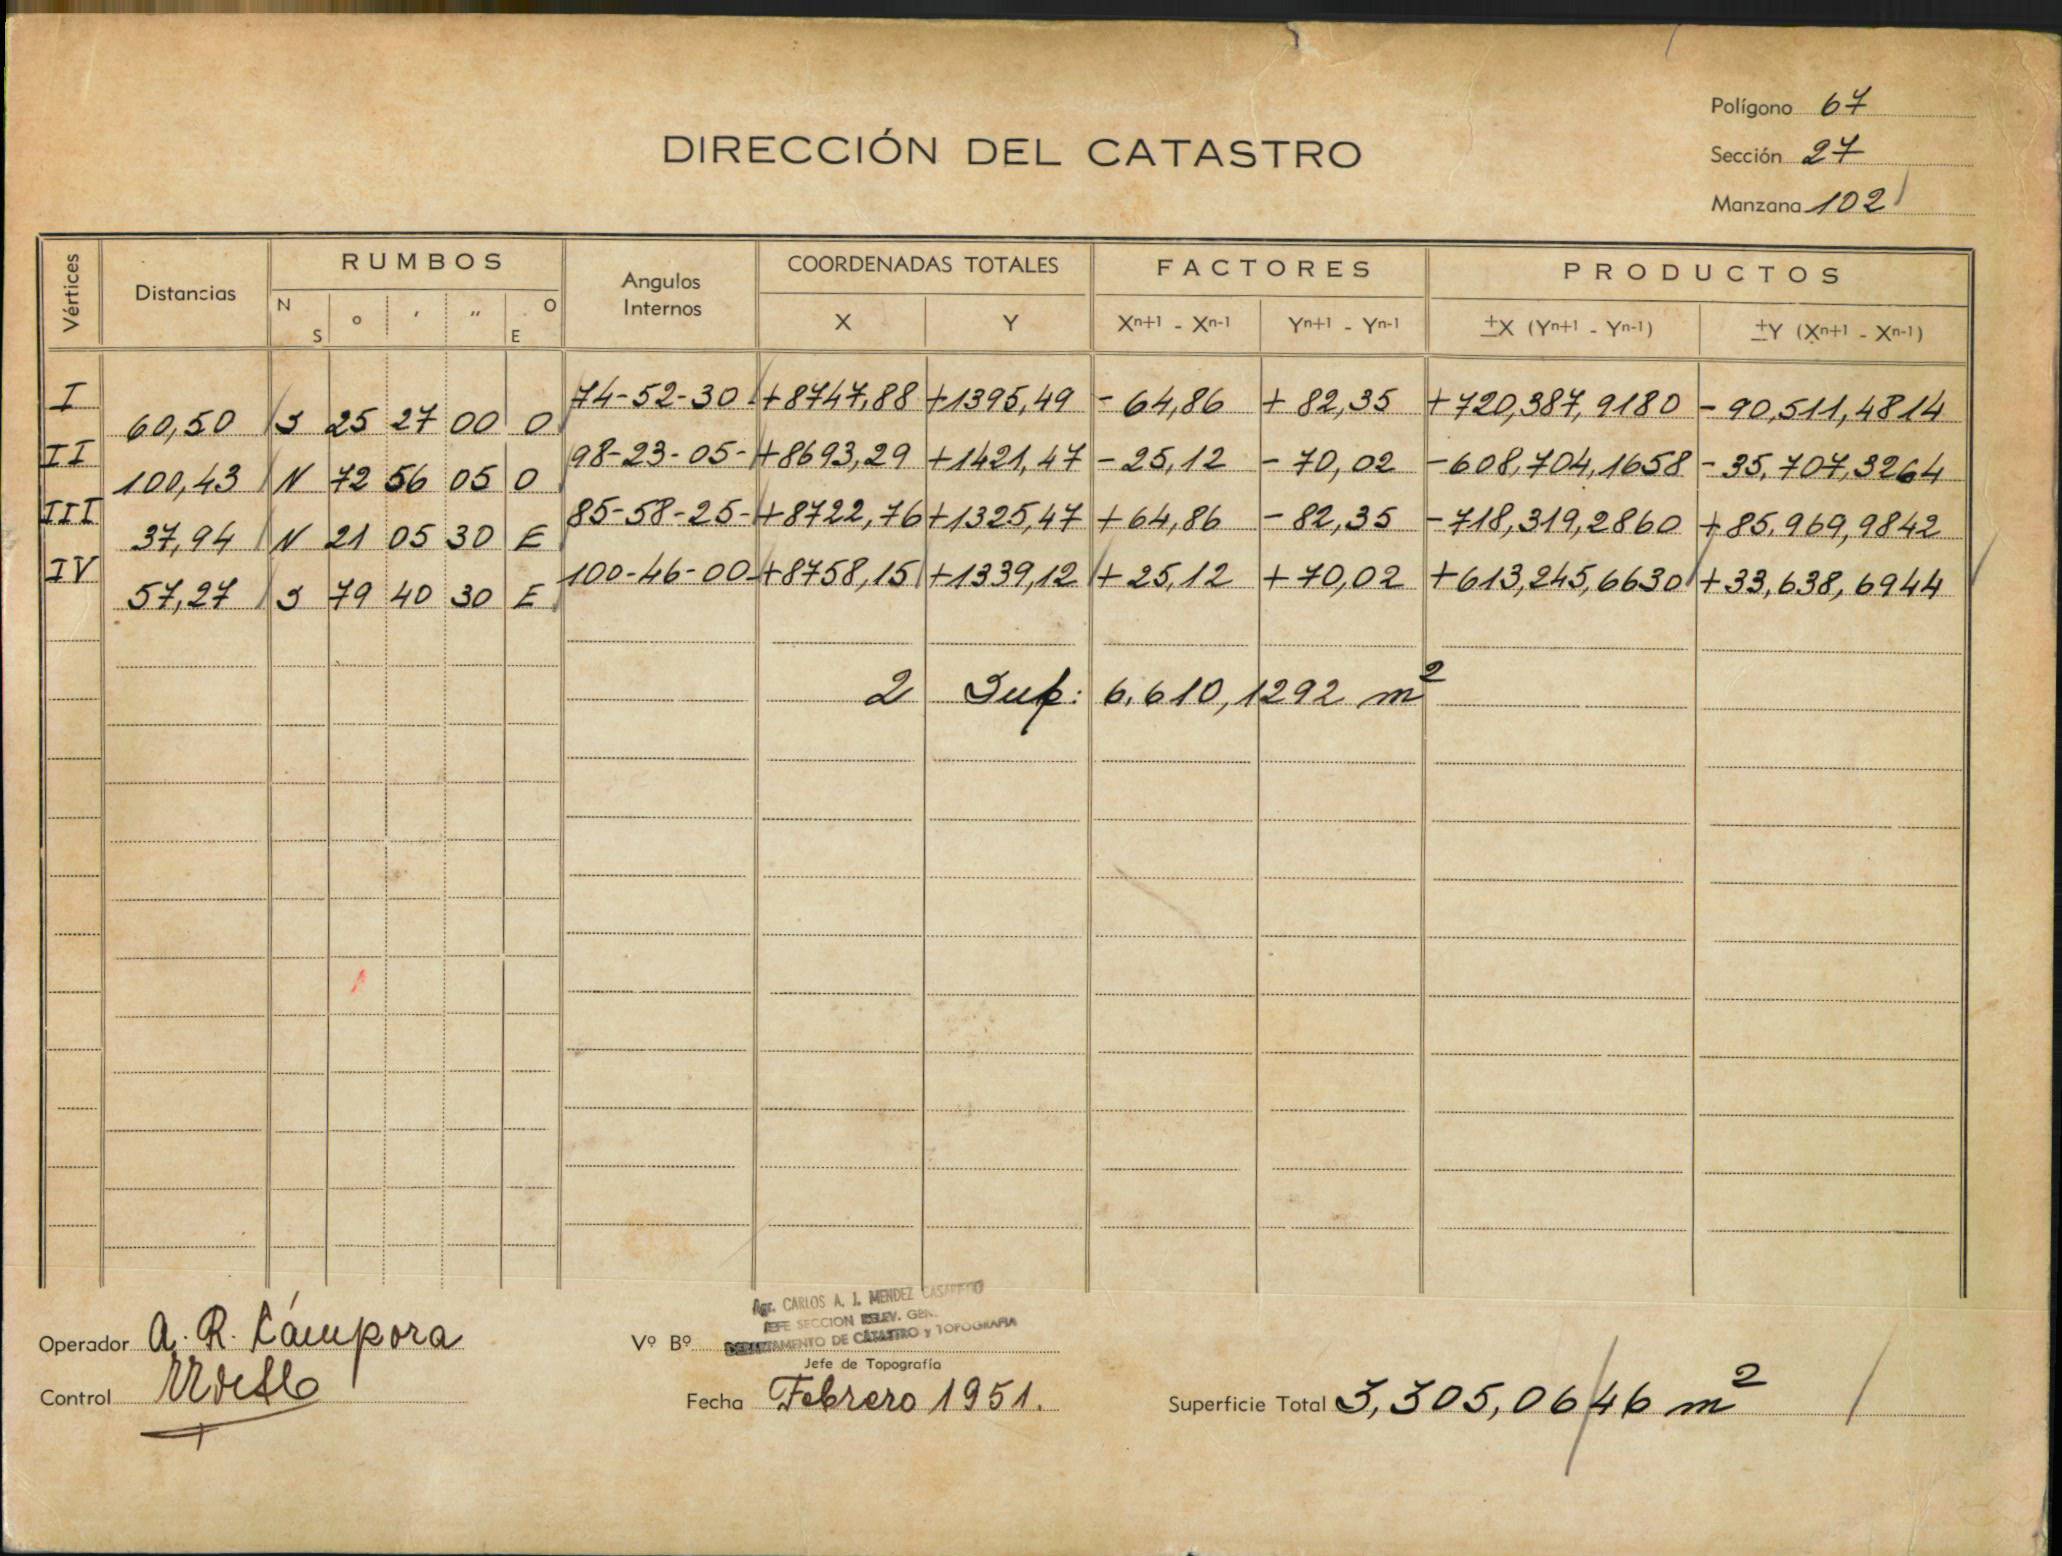 Polígono 67
DIRECCIÓN DEL CATASTRO
Sección 27
Manzana 102
Vértices Distancias RUMBOS Angulos Internos COORDENADAS TOTALES FACTORES PRODUCTOS
N S ° ' " O E X Y Xn+1 - Xn-1 Yn+1 - Yn-1 ±X (Yn+1 - Yn-1) ±Y (Xn+1 - Xn-1)
I 74-52-30 +8747,88 +1395,49 - 64,86 + 82,35 +720,387,9180 - 90,511,4814
60,50 S 25 27 00 O
II 98-23-05- +8693,29 +1421,47 - 25,12 - 70,02 -608,704,1658 - 35,707,3264
100,43 N 72 56 05 O
III 85-58-25- +8722,76 +1325,47 + 64,86 - 82,35 -718,319,2860 + 85.969,9842
37,94 N 21 05 30 E
IV 100-46-00- +8758,15 +1339,12 + 25,12 + 70,02 +613,245,6630 +33,638,6944
57,27 S 79 40 30 E
2 Sup: 6.610,1292 m²
Agr. CARLOS A. J. MENDEZ
JEFE SECCION RELEV. GEN.
DEPARTAMENTO DE CATASTRO y TOPOGRAFIA
Operador A. R. Cámpora Vº Bº
Jefe de Topografía
Control Fecha Febrero 1951. Superficie Total 3,305,0646 m²